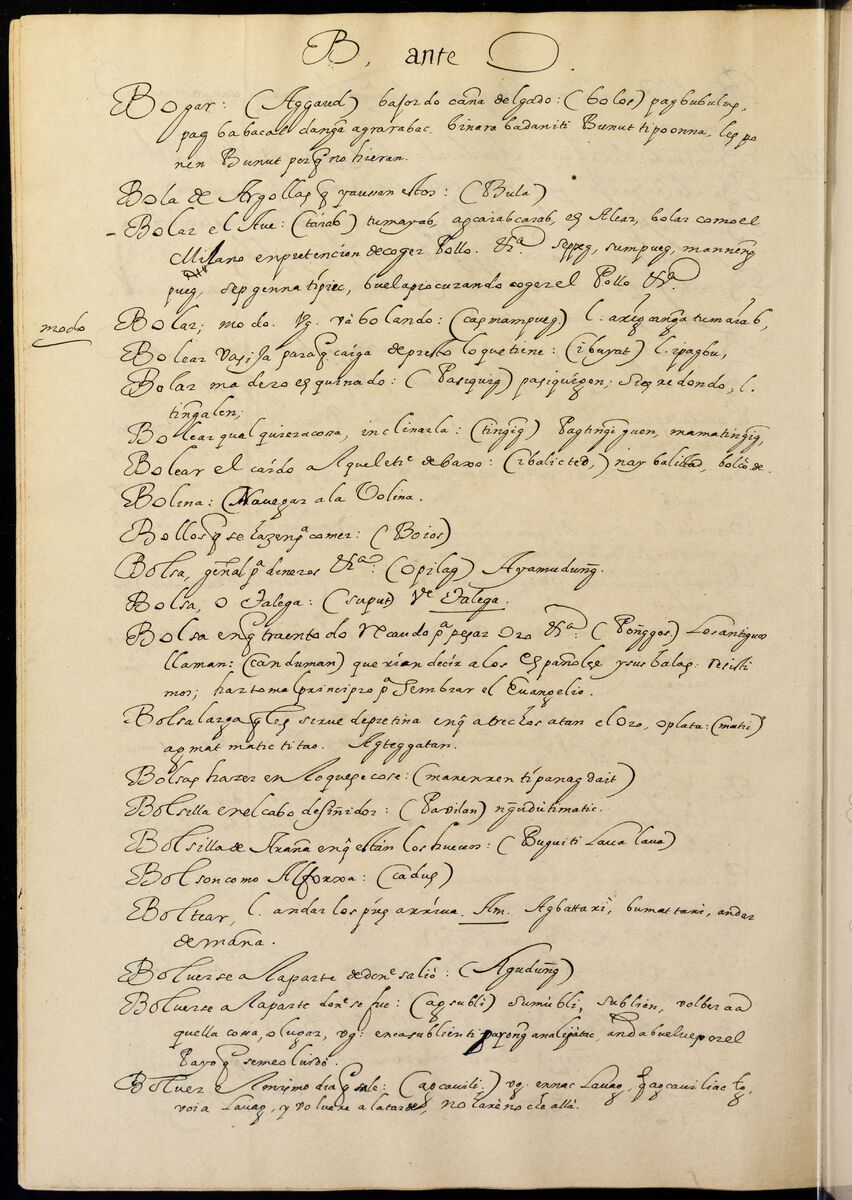 B, ante O
Bogar: (Aggaud) bafordo caña delgado: (bolos) pagbubulus,
pag babacal danga agrarabac, binara badaniti Bunut tipoonna, les po
nen Bunut porq̃ no hieran.
Bola de Argollas q̃ vausan estos: (Bula)
- Bolar el Aue: (tàrab) tumayab, agcarabcarab, es Alear, bolar como el
Milano en pretencion de coger Pollo. &ra. seppeg, sumpueg, manneng
pueg, sepgenna tipiec, buela procurando coger el Pollo &ra.
modo
Bolar; modo. Vg. và bolando: (casmampueg) l. tumàrab,
Bolear vasija paraq̃ caiga de presto loque tiene: (ibuyat) l. ipagbu,
Bolar madero esquinado: (Pasiquig) pasiquigen; si es redondo, l.
tingalen;
Bolear qualquiera cosa, inclinarla: (tingig) Pagtingiguen, mamatingig,
Bolear el cardo Aqueleti.e de baxo: (ibalicted,) nay balictad, bolcò de.
Bolina: (Nauegar a la Volina.
Bollos q̃ se hazen p.a comer: (Boios)
Bolsa, geñal p.a dineros &ra: (opilag) Ayamudung.
Bolsa, o Talega: (suput) Ve Talega.
Bolsa enq̃ traen todo recaudo p.a pesar Oro &ra: (Ponggos) Los antiguos
llaman: (canduman) querian decir a los españoles y sus balas: resisti
mos; harto mal principio p.a sembrar el Euangelio.
Bolsa larga q̃ les sirue de pretina enq̃ a trechos atan el Oro, o plata: (matic)
ag mat matic titao. Agteggatan.
Bolsas hazer en lo que se cose: (marenren tipanagdait)
Bolsilla en el cabo de siñidor: (Pavilan) ngudùtimatic.
Bolsilla de Araña enq̃ estàn los hueuos: (Puquiti Laua laua)
Bolson como Alforxa: (cadus)
Boltear, l. andar los pies arriua. Am. Agbattari, bumattari, andar
de maña.
Boluerse a la parte de don.e saliò: (Agudung)
Boluerse a la parte don.e se fue: (agsubli) sumùbli, sublien, volber a a
quella cosa, o lugar, vg: encasublienti payong analipàtac, anda buelue por el
Payo q̃ se me oluidò.
Boluer el mismo dia q̃ sale: (agcauili:) vg. ennac Lauag, agcauiliac
voi a Lauag, y volvere a la tarde, no harè noche allà.